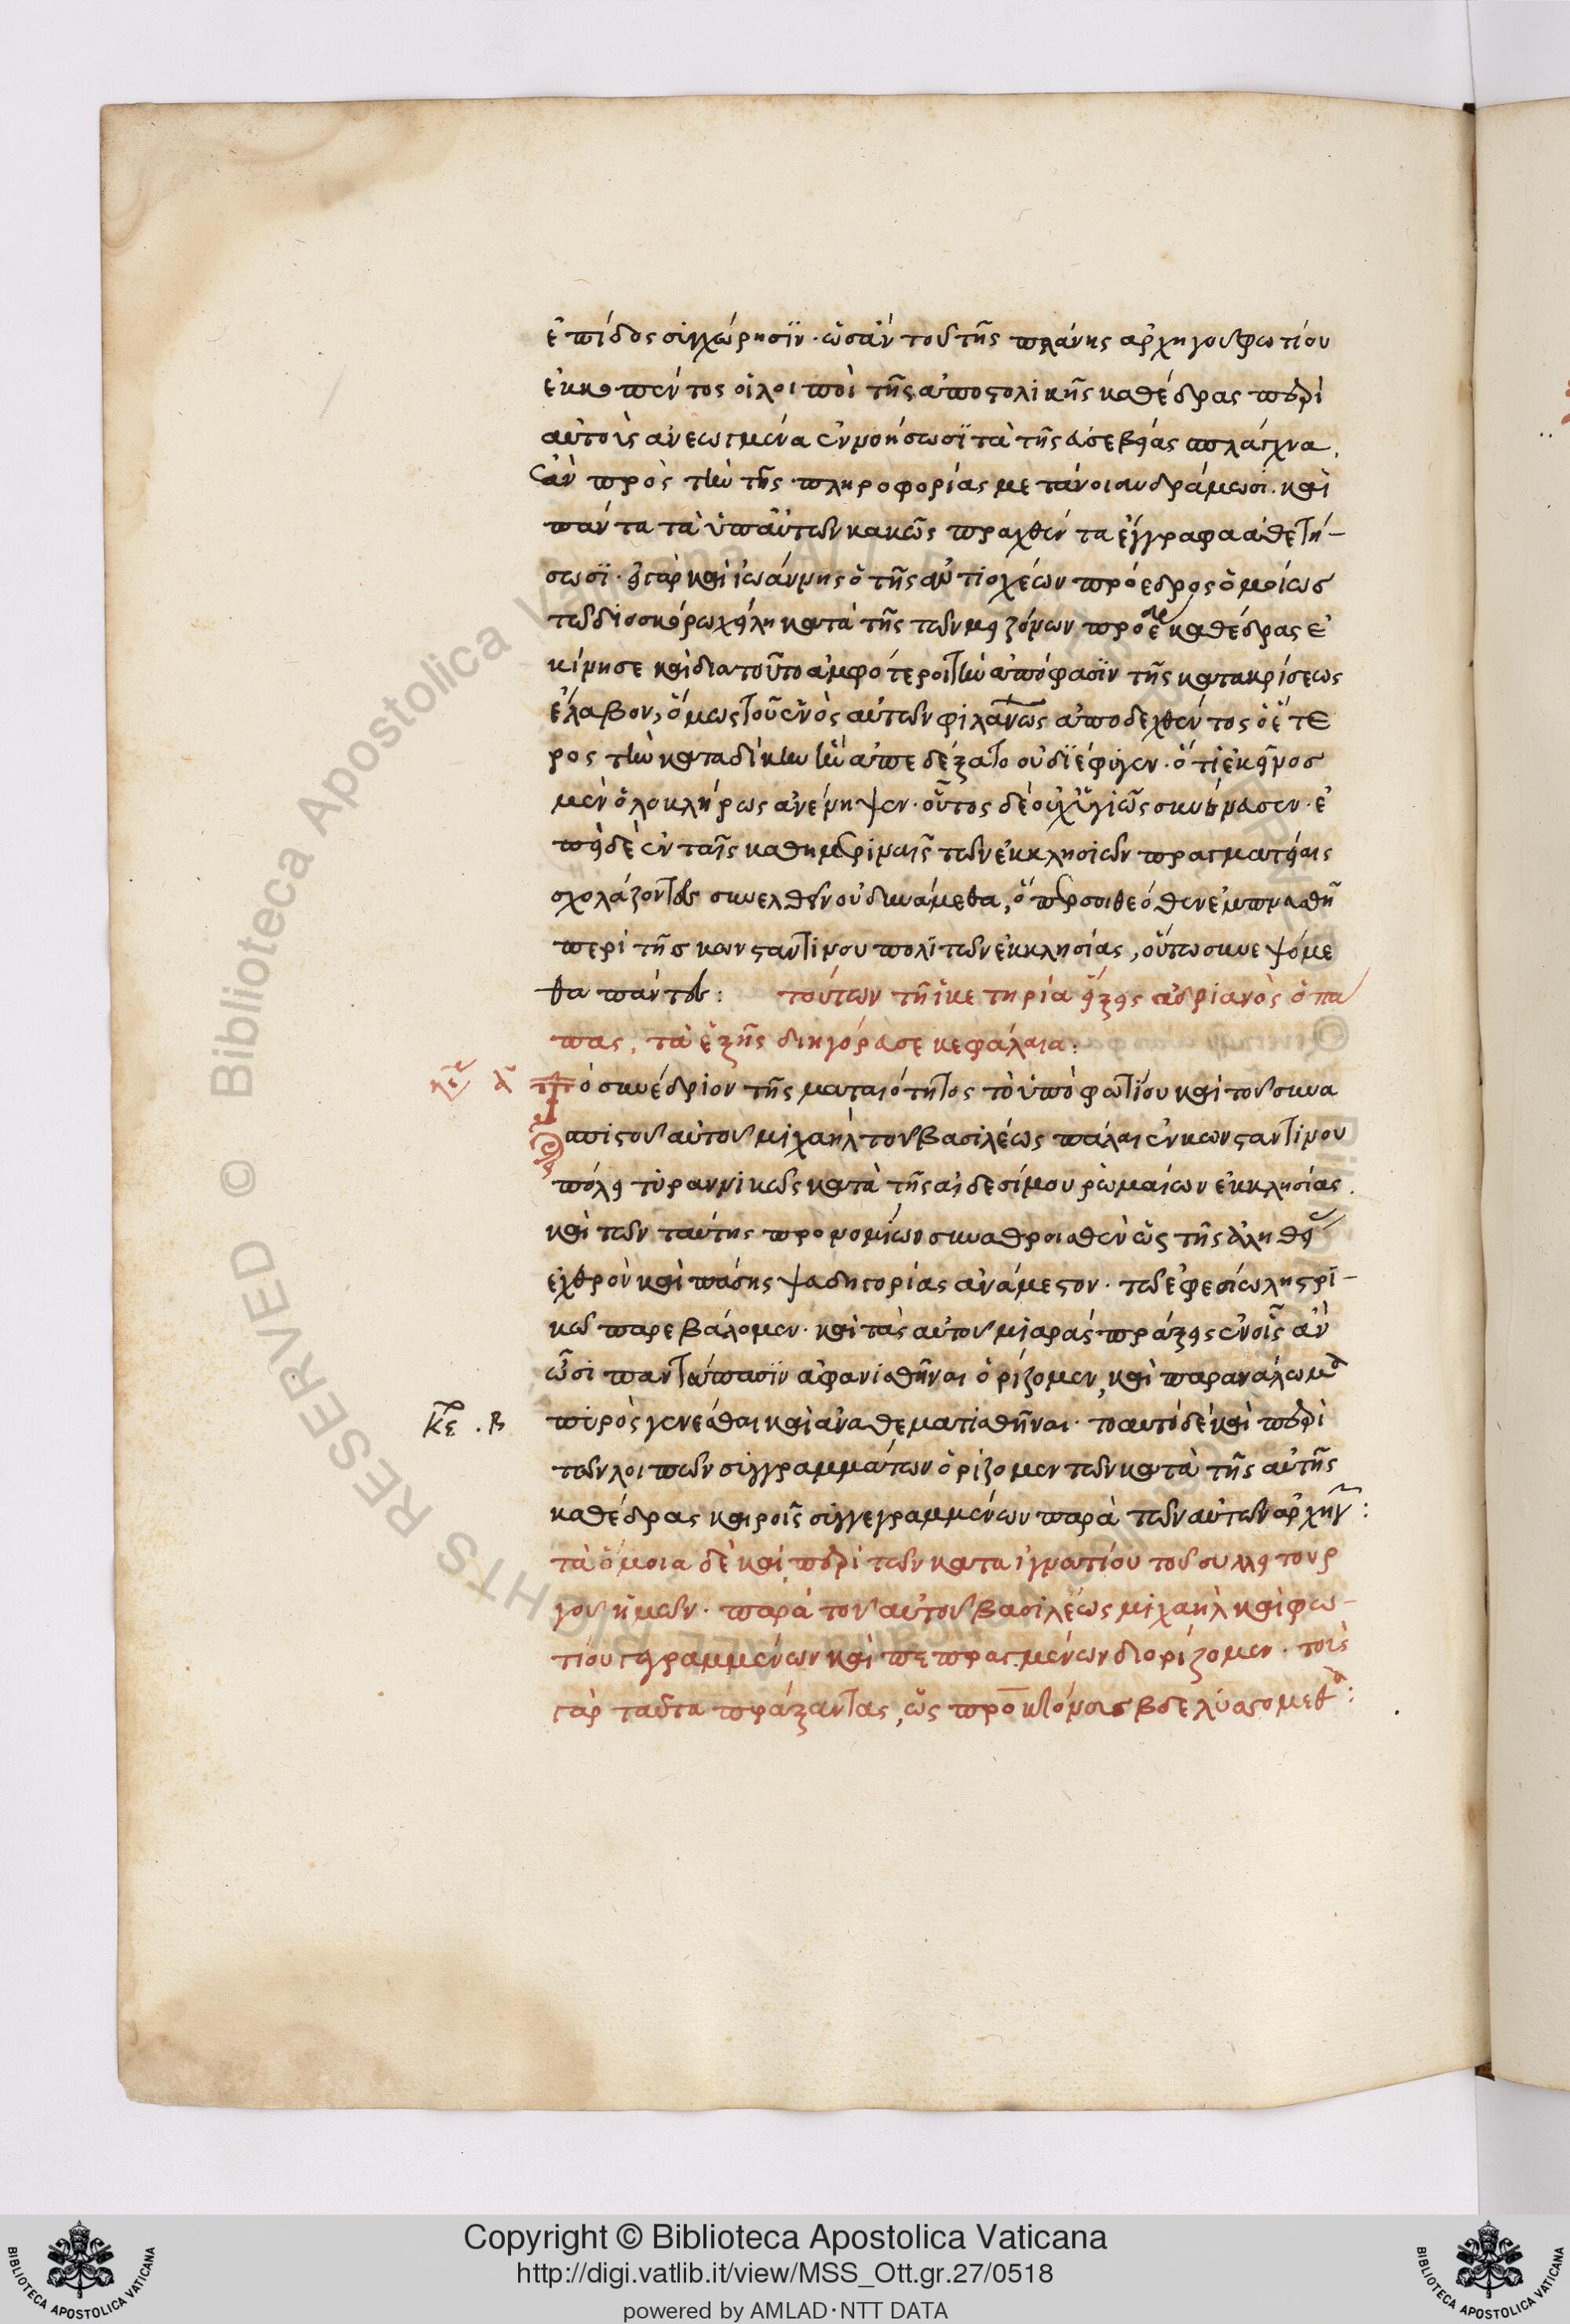 ἐπίδος συγχώρησιν· ὡς ἂν τοῦ τῆς πλάνης ἀρχηγοῦ φωτίου
ἐκκοπέντος οἱ λοιποὶ τῆς ἀποστολικῆς καθέδρας περὶ
αὐτοὺς ἀνεωγμένα ἐννοήσωσι τὰ τῆς εὐσεβείας σπλάγχνα,
ἐὰν πρὸς τὴν τῆς πληροφορίας μετάνοιαν δράμωσι. καὶ
πάντα τὰ ὑπ' αὐτῶν κακῶς πραχθέντα ἔγγραφα ἀθετή-
σωσι. εἰ γὰρ καὶ ἰωάννης ὁ τῆς ἀντιοχέων πρόεδρος ὁμοίως
τῷ διοσκόρῳ χείλη κατὰ τῆς τῶν μειζόνων καθέδρας ἐ
κίνησε καὶ διὰ τοῦτο ἀμφότεροι τὴν ἀπόφασιν τῆς κατακρίσεως
ἔλαβον, ὅμως τοῦ ἑνὸς αὐτῶν φιλανως ἀποδεχθέντος ὁ ἕτε
ρος τὴν καταδίκην ἣν ἀπεδέξατο οὐ διέφυγεν. ὅτι ἐκεῖνος
μὲν ὁλοκλήρως ἀνένηψεν. οὗτος δὲ οὐχ ὑγιῶς συνήνεσεν. ἐ
πεὶ δὲ ἐν ταῖς καθημεριναῖς τῶν ἐκκλησιῶν πραγματείαις
σχολάζοντες συνελθεῖν οὐ δυνάμεθα,
περὶ τῆς κωνσταντινουπολιτῶν ἐκκλησίας, οὕτω συνεψόμε
θα πάντες: τούτων τῇ ἱκετηρίᾳ εἴξας ἀδριανὸς ὁ πα
πας, τὰ ἑξῆς διηγόρευσε κεφάλαια:
α Τὸ συνέδριον τῆς ματαιότητος τὸ ὑπὸ φωτίου καὶ τοῦ συνα
σπιστοῦ αὐτοῦ μιχαὴλ τοῦ βασιλέως πάλαι ἐν κωνσταντίνου
πόλει τυραννικῶς κατὰ τῆς αἰδεσίμου ῥωμαίων ἐκκλησίας
καὶ τῶν ταύτης προνομίων συναθροισθὲν ὡς τῆς ἀληθεί
ἐχθρὸν καὶ πάσης ψευδηγορίας ἀνάμεστον. τῷ ἐφεσίῳ λῃστρι-
κῷ παρεβάλομεν. καὶ τὰς αὐτοῦ μιαρὰς πράξεις ἐν οἷς ἂν
ὦσι παντάπασιν ἀφανισθῆναι ὁρίζομεν, καὶ παρανάλωμα
κε. β πυρὸς γενέσθαι καὶ ἀναθεματισθῆναι. τὸ αὐτὸ δὲ καὶ περὶ
τῶν λοιπῶν συγγραμμάτων ὁρίζομεν τῶν κατὰ τῆς αὐτῆς
καθέδρας καιροῖς συγγεγραμμένων παρὰ τῶν αὐτῶν ἀρχηγ:
τὰ ὅμοια δὲ καὶ περὶ τῶν κατὰ ἰγνατίου τοῦ συλλειτουρ
γοῦ ἡμῶν. παρὰ τοῦ αὐτοῦ βασιλέως μιχαὴλ καὶ φω-
τίου γεγραμμένων καὶ πεπραγμένων διορίζομεν. τοὺς
γὰρ ταῦτα πράξαντας, ὡς βδελυσσόμεθα:
Copyright © Biblioteca Apostolica Vaticana
http://digi.vatlib.it/view/MSS_Ott.gr.27/0518
powered by AMLAD·NTT DATA